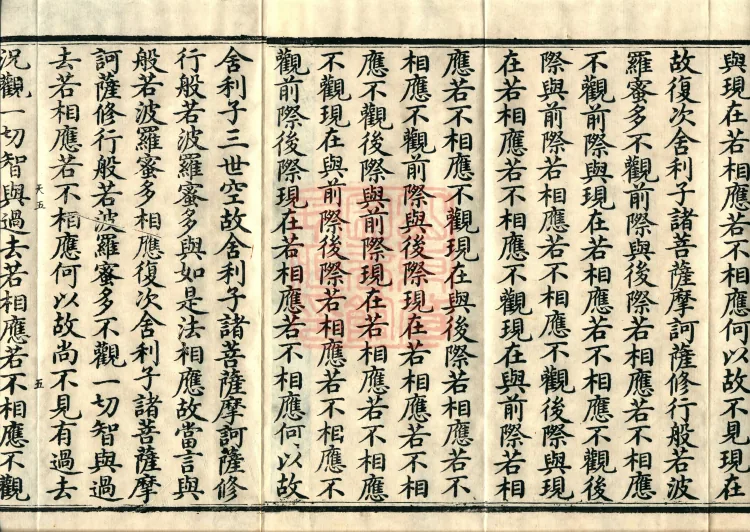 與現在若相應若不相應何以故不見現在
故復次舍利子諸菩薩摩訶薩修行般若波
羅蜜多不觀前際與後際若相應若不相應
不觀前際與現在若相應若不相應不觀後
際與前際若相應若不相應不觀後際與現
在若相應若不相應不觀現在與前際若相
應若不相應不觀現在與後際若相應若不
相應不觀前際與後際現在若相應若不相
應不觀後際與前際現在若相應若不相應
不觀現在與前際後際若相應若不相應不
觀前際後際現在若相應若不相應何以故
舍利子三世空故舍利子諸菩薩摩訶薩修
行般若波羅蜜多與如是法相應故當言與
般若波羅蜜多相應復次舍利子諸菩薩摩
訶薩修行般若波羅蜜多不觀一切智與過
去若相應若不相應何以故尚不見有過去
天五
五
況觀一切智與過去若相應若不相應不觀